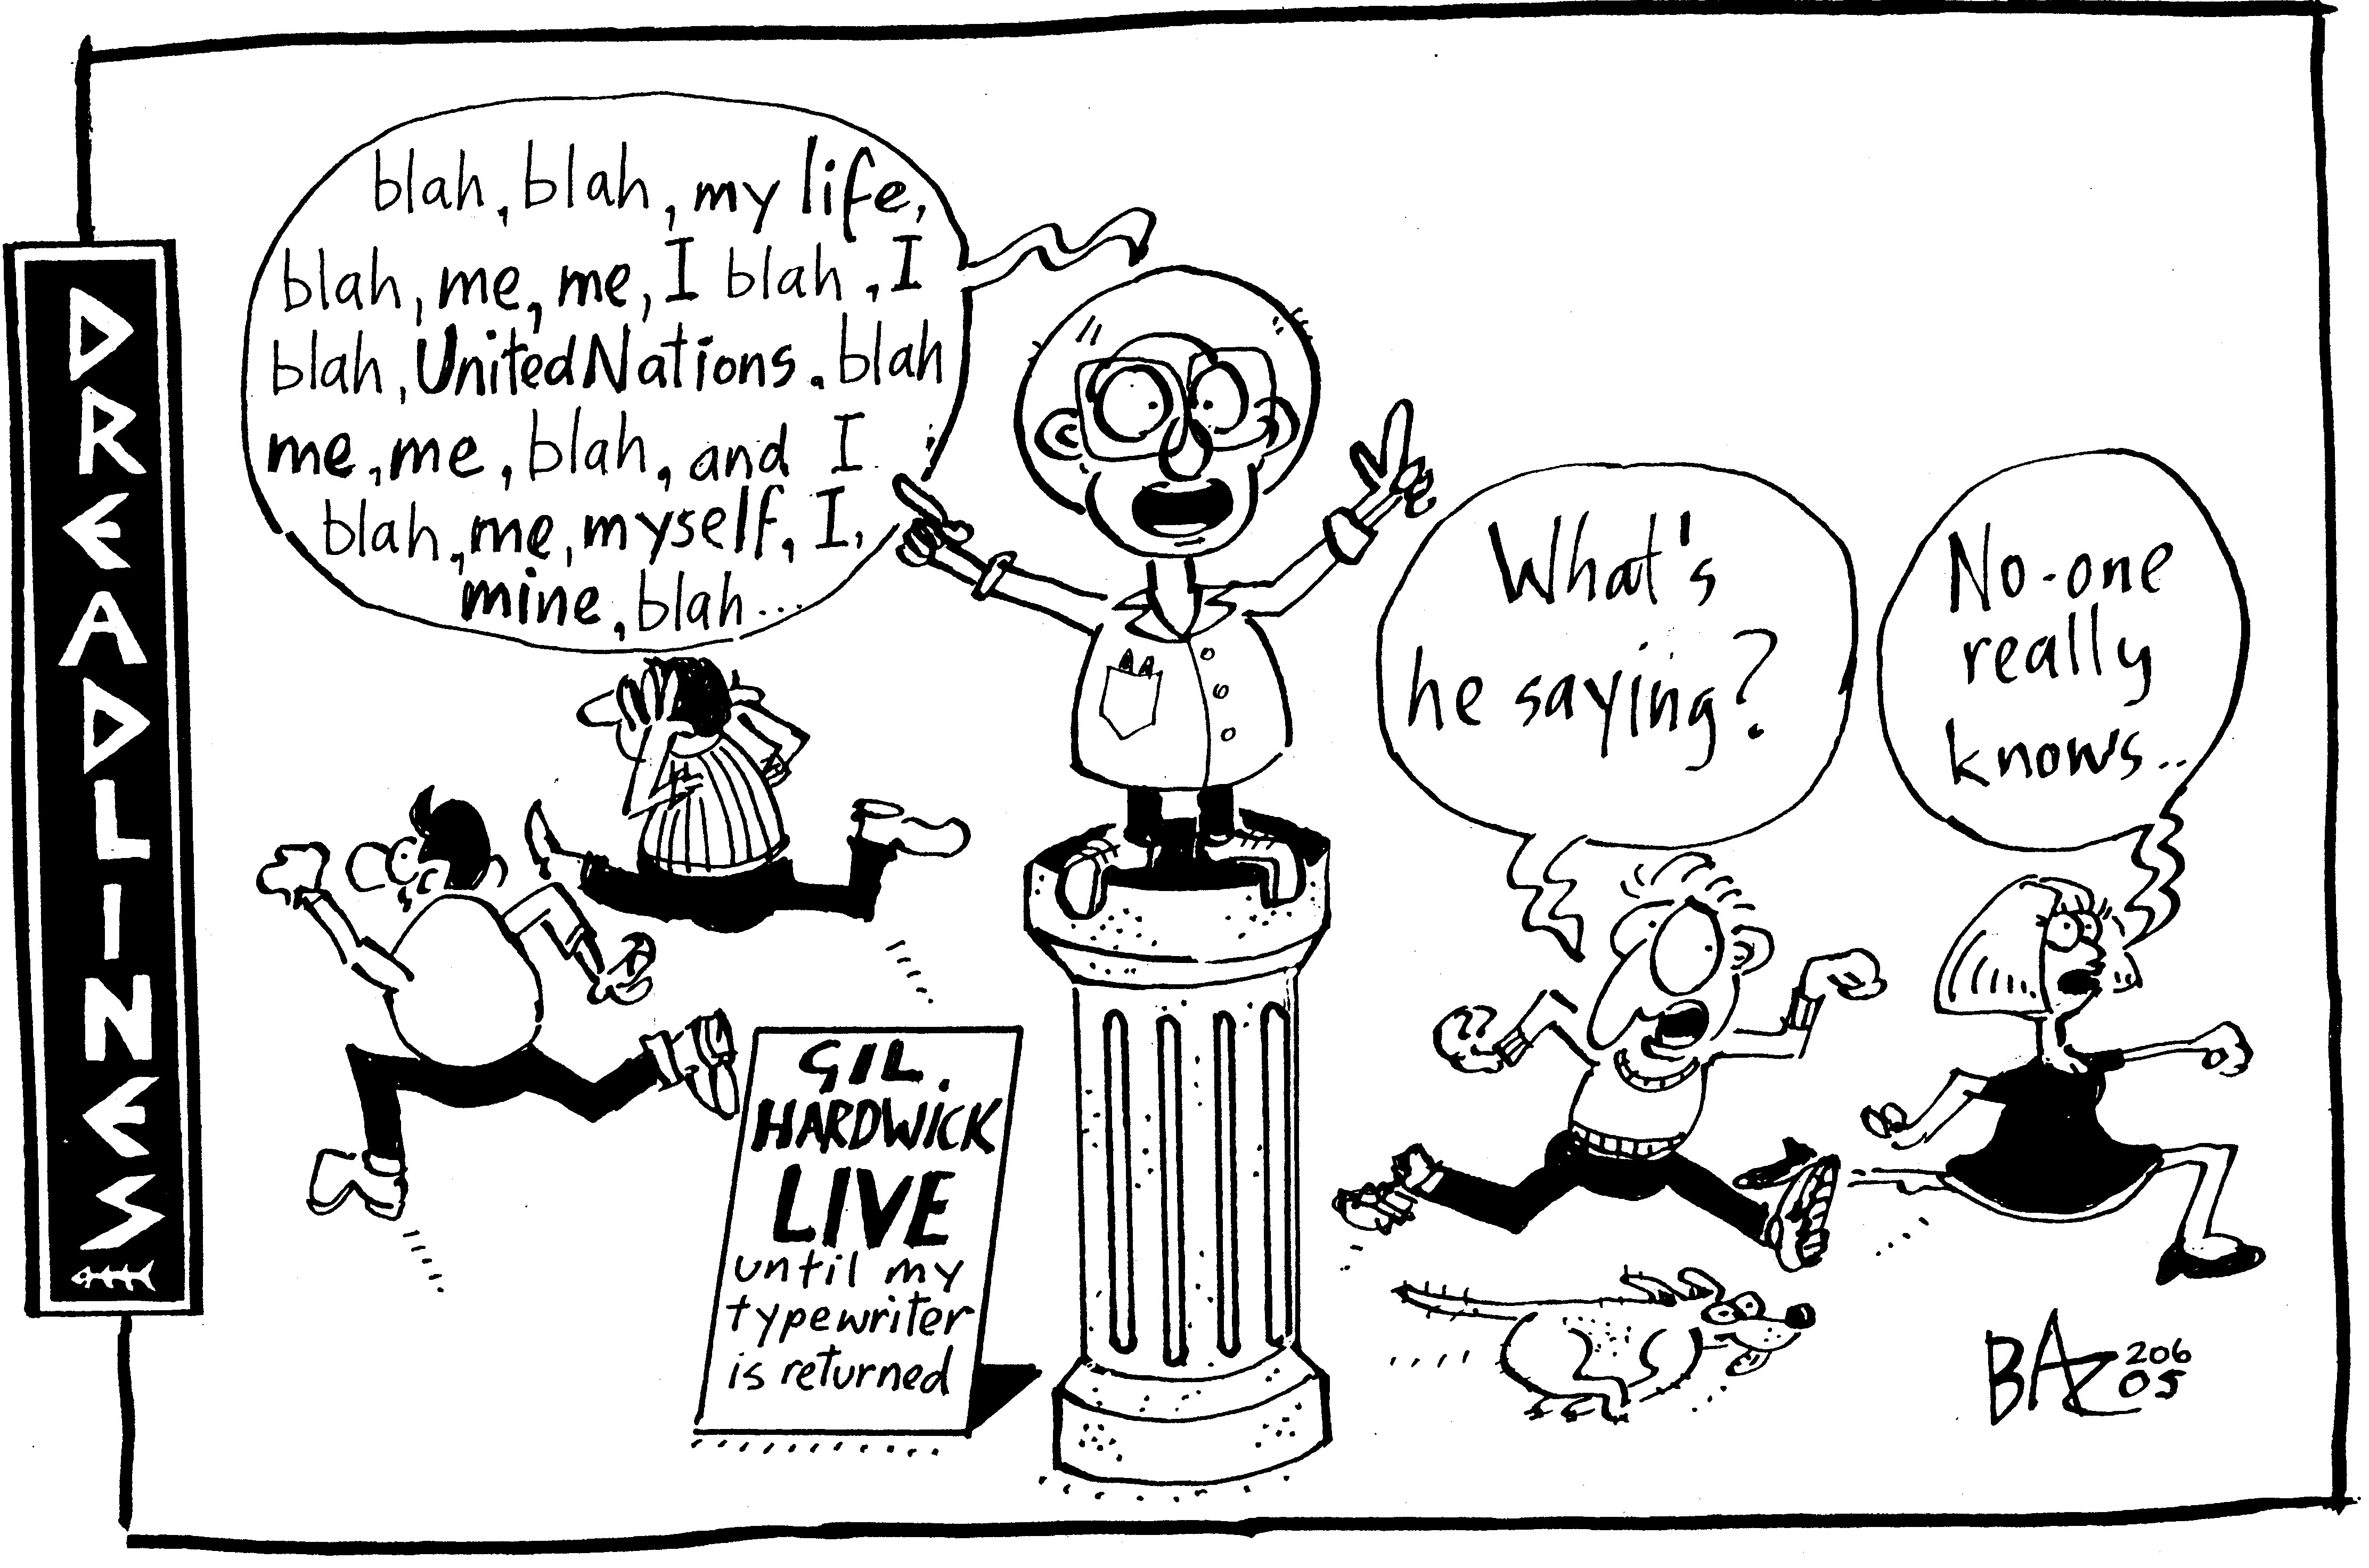 DREADLINES
blah, blah, my life,
blah, me, me, I blah, I
blah, United Nations. blah
me, me, blah, and I
blah, me, myself, I,
mine, blah...
What's
he saying?
No-one
really
knows..
GIL.
HARDWICK
LIVE
until my
typewriter
is returned
BAZ
206
05